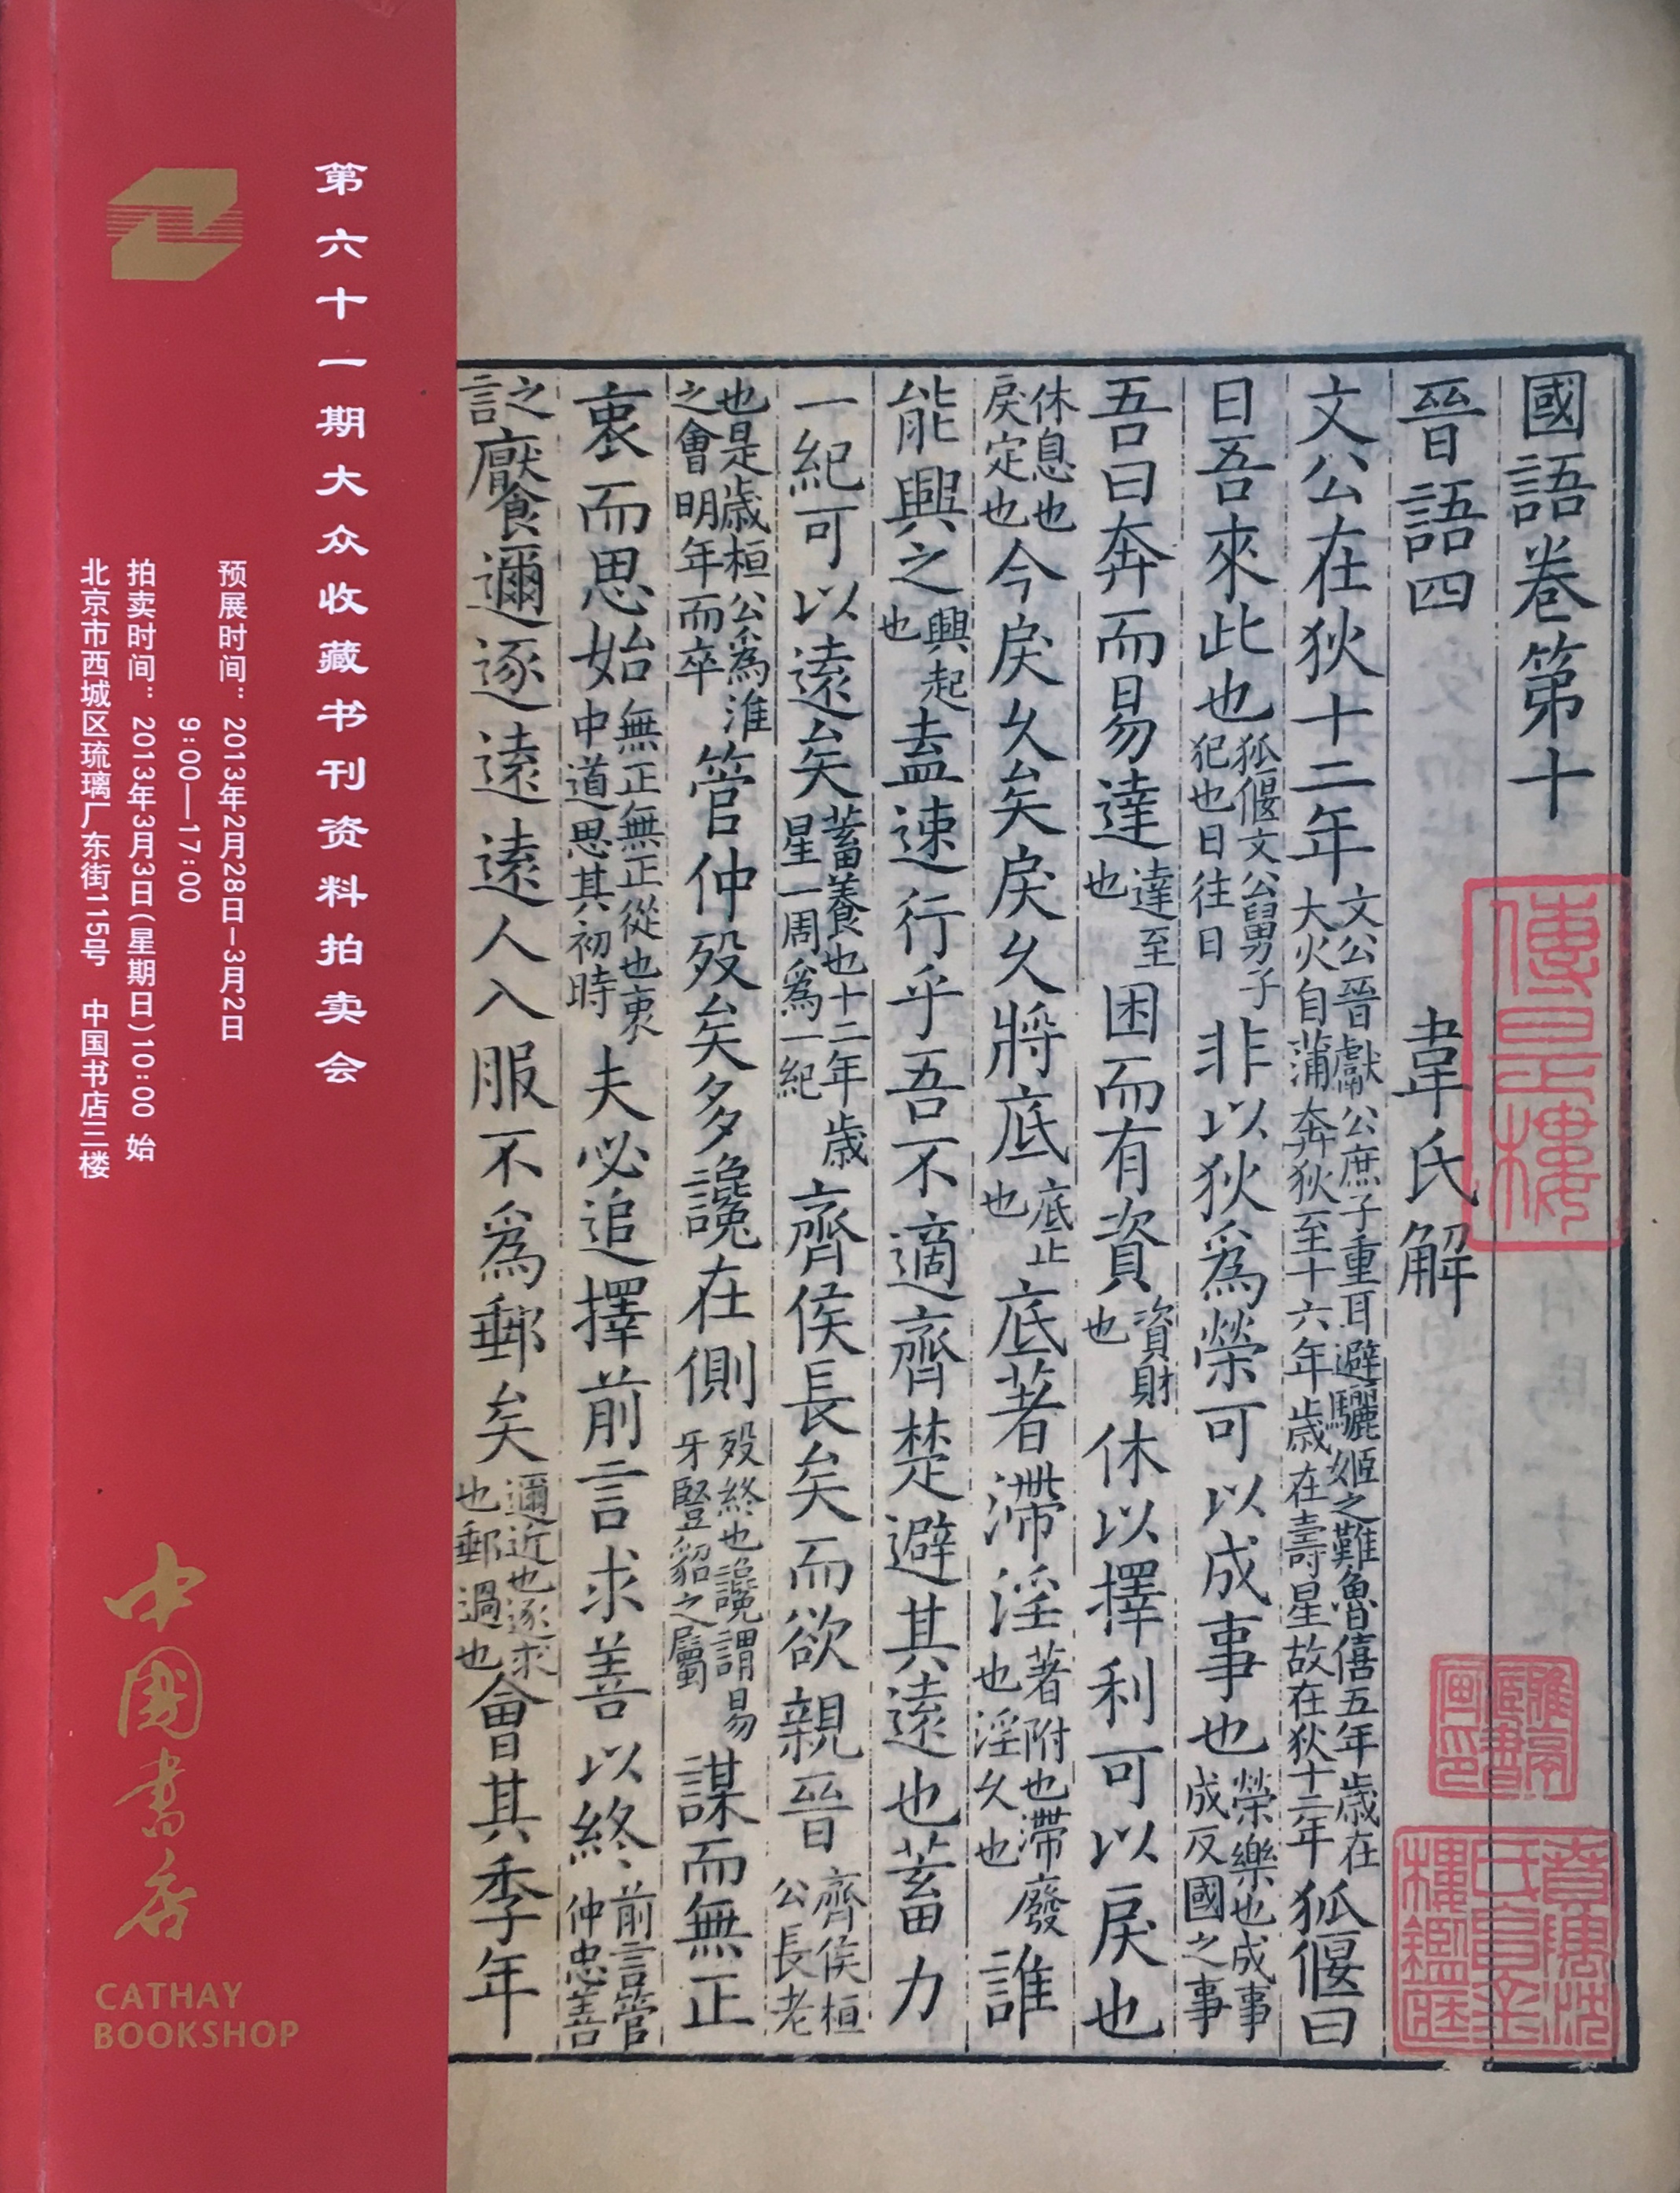 第六十一期大众收藏书刊资料拍卖会
预展时间：2013年2月28日—3月2日
9:00—17:00
拍卖时间：2013年3月3日(星期日)10:00 始
北京市西城区琉璃厂东街115号 中国书店三楼
中國書店
CATHAY
BOOKSHOP
國語卷第十
晉語四 韋氏解
文公在狄十二年文公晉獻公庶子重耳避驪姬之難魯僖五年歲在大火自蒲奔狄至十六年歲在壽星故在狄十二年狐偃曰
日吾來此也狐偃文公舅子犯也日往日非以狄為榮可以成事也榮樂也成事成反國之事
吾曰奔而易達達至也困而有資資財也休以擇利可以戾也
休息也戾定也今戾久矣戾久將底底止也底著滯淫著附也滯廢也淫久也誰
能興之興起也盍速行乎吾不適齊楚避其遠也蓄力
一紀可以遠矣蓄養也十二年歲星一周為一紀齊侯長矣而欲親晉齊侯桓公長老
也是歲桓公為淮之會明年而卒管仲歿矣多讒在側歿終也讒謂易牙豎貂之屬謀而無正
衷而思始無正無正從也衷中道思其初時夫必追擇前言求善以終前言管仲忠善
之言饜邇逐遠遠人入服不為郵矣邇近也逐求也郵過也會其季年
傳是樓